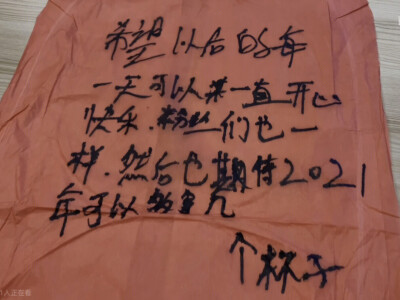 希望以后的每
一天可以菜一直开心
快乐.粉丝们也一
样.然后也期待2021
年可以多拿几
个杯子
1人正在看